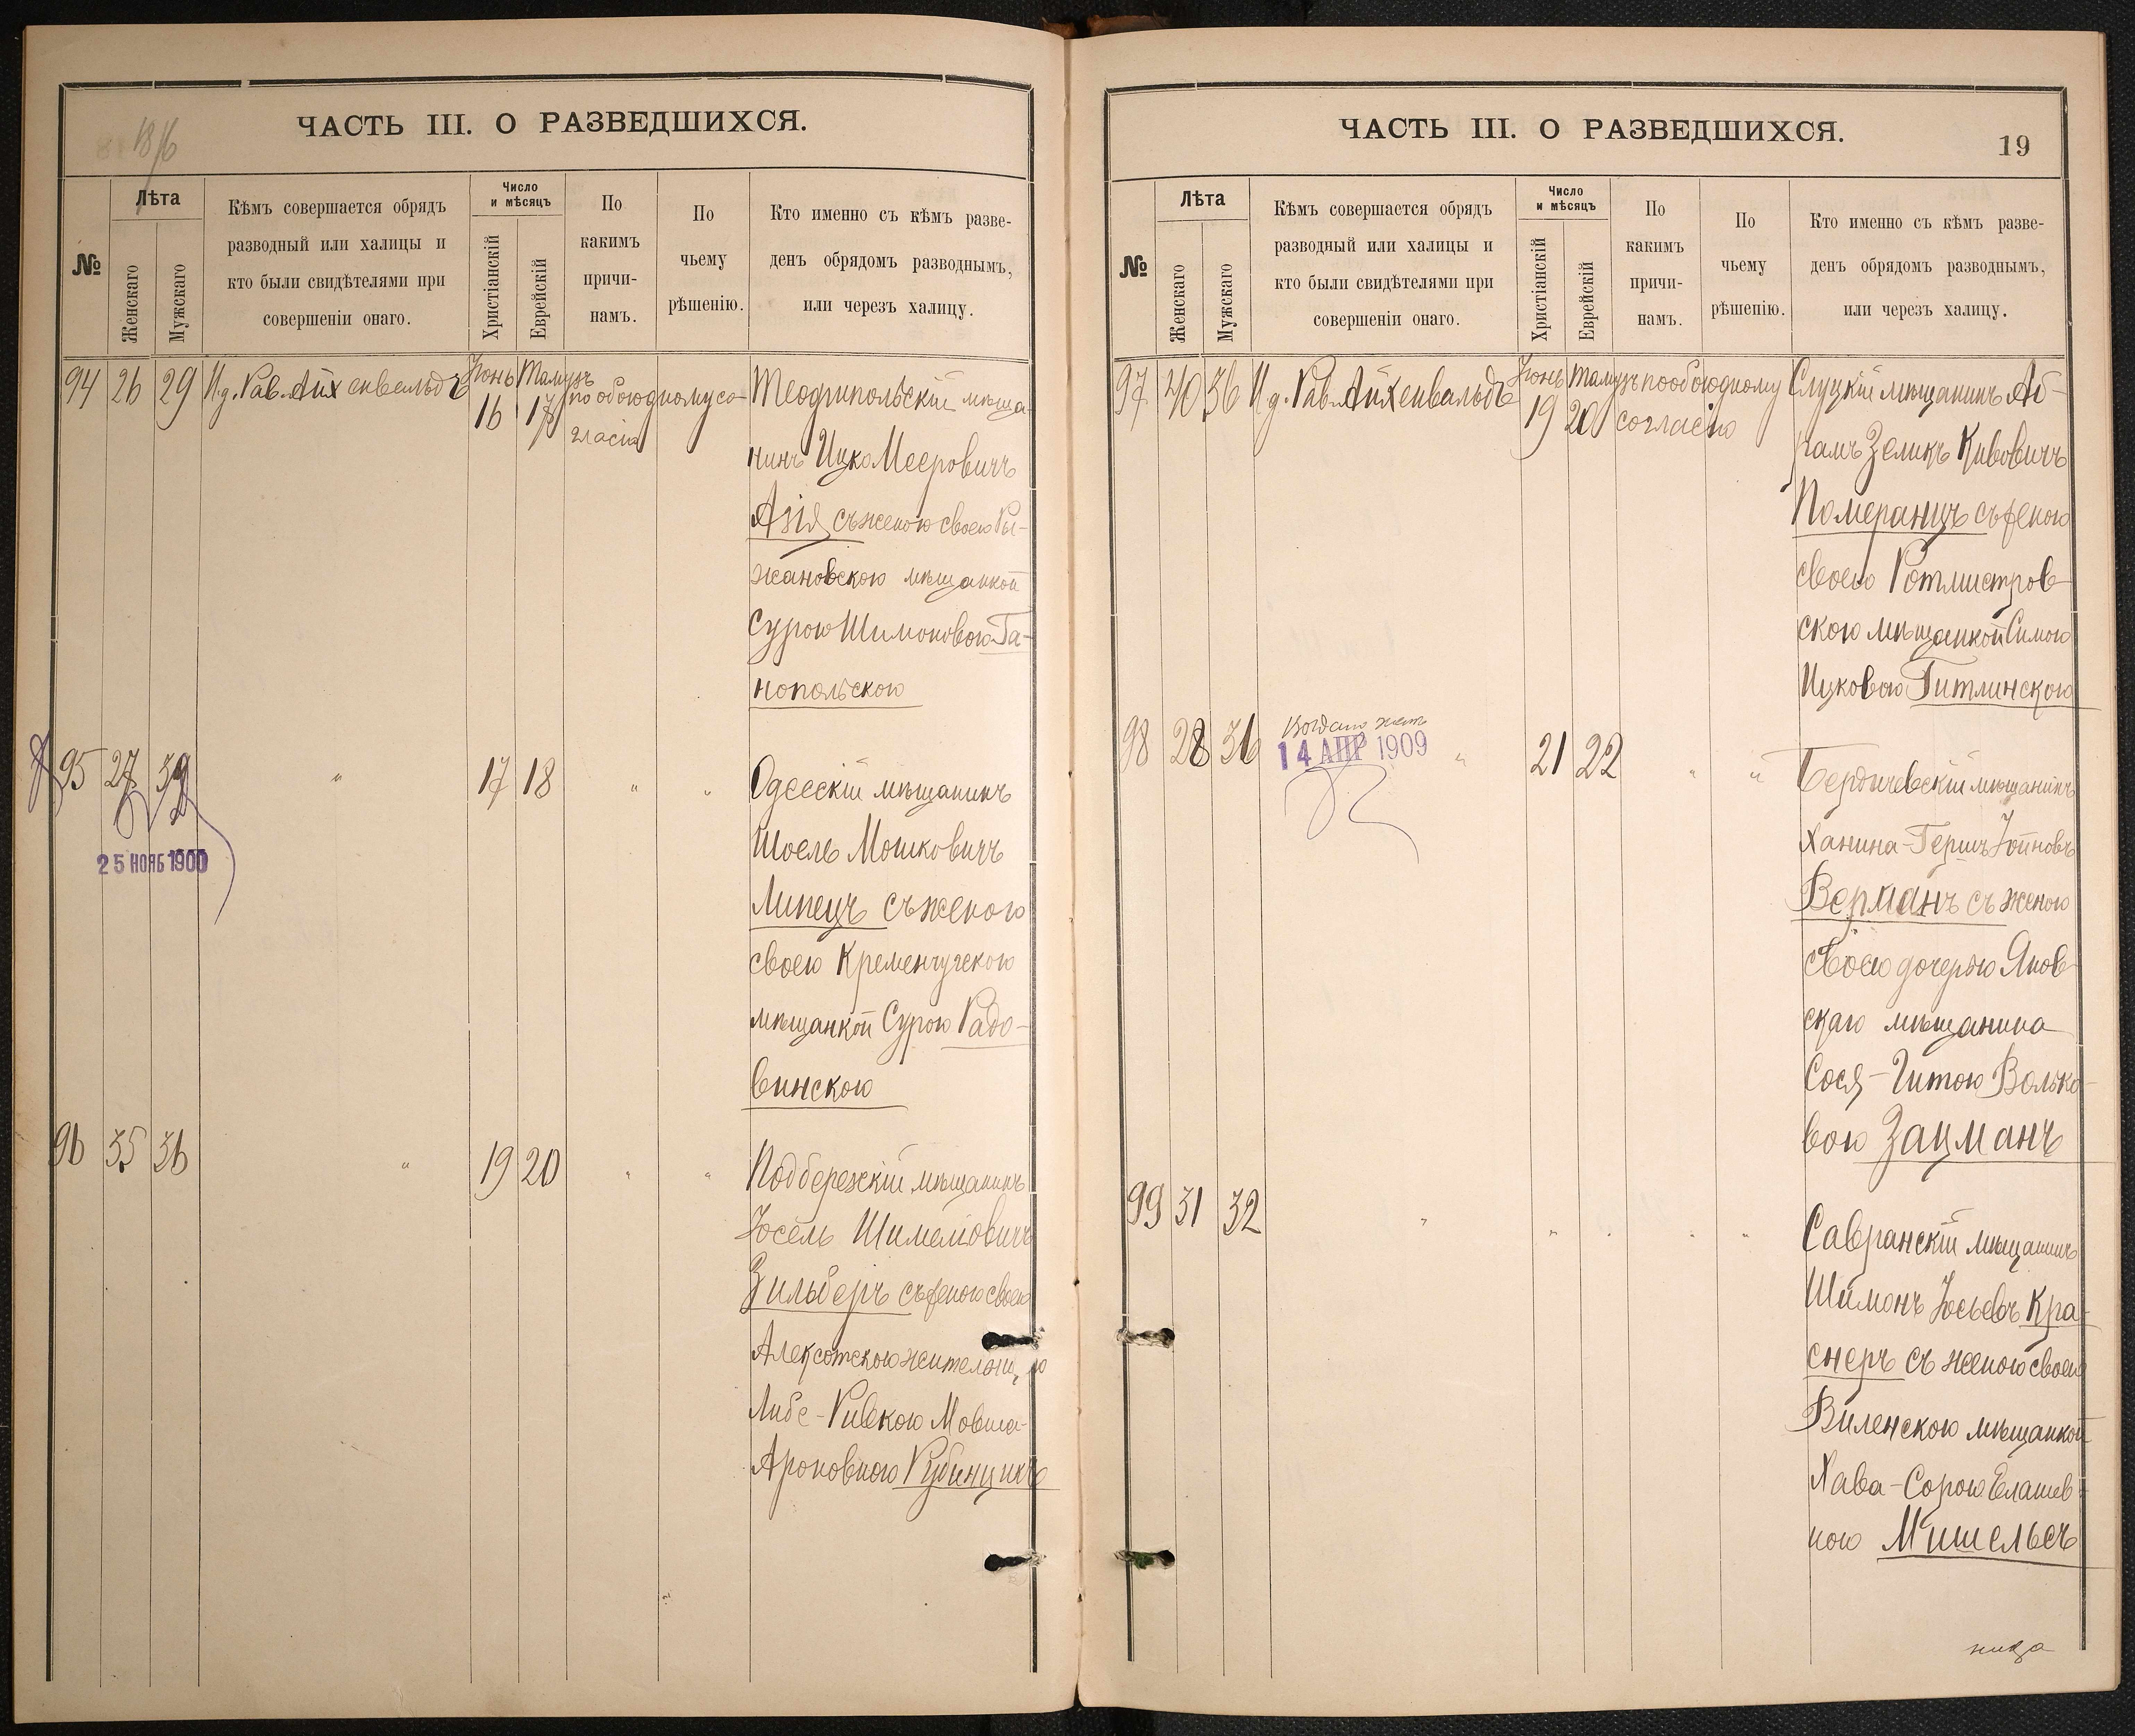 18/6
ЧАСТЬ III. О РАЗВЕДШИХСЯ.
№
Лѣта
Женскаго
Мужскаго
Кѣмъ совершается обрядъ
разводный или халицы и
кто были свидѣтелями при
совершеніи онаго.
Число
и мѣсяцъ
Христіанскій
Еврейскій
По
какимъ
причи-
намъ.
По
чьему
рѣшенію.
Кто именно съ кѣмъ разве-
денъ обрядомъ разводнымъ,
или черезъ халицу.
94 26 29 И.д. Рав. Айхенвальдъ Іюнь 16 Тамузъ 17 по обоюдному со-
гласію
Теофипольскій мѣща-
нинъ Ицко Мееровичъ
Азія съ женою своею Ры-
жановскою мѣщанкой
Сурою Шимоновою Га-
нопольскою
95 27 39 " 17 18 " "
25 НОЯБ 1900
Одесскій мѣщанинъ
Шоель Мошковичъ
Липецъ съ женою
своею Кременчугскою
мѣщанкой Сурою Радо-
винскою
96 35 36 " 19 20 " "
Подбережскій мѣщанинъ
Іосель Шимелiовичъ
Зильберъ съ женою своею
Алексотскою жительницею
Либе-Ривкою Мовша-
Ароновною Рубинщикъ
ЧАСТЬ III. О РАЗВЕДШИХСЯ.
19
№
Лѣта
Женскаго
Мужскаго
Кѣмъ совершается обрядъ
разводный или халицы и
кто были свидѣтелями при
совершеніи онаго.
Число
и мѣсяцъ
Христіанскій
Еврейскій
По
какимъ
причи-
намъ.
По
чьему
рѣшенію.
Кто именно съ кѣмъ разве-
денъ обрядомъ разводнымъ,
или черезъ халицу.
97 40 36 И.д. Рав. Айхенвальдъ Іюнь 19 Тамузъ 20 по обоюдному
согласію
Слуцкій мѣщанинъ Аб-
рамъ Зеликъ Кивовичъ
Померанцъ съ женою
своею Ротмистров-
скою мѣщанкой Симою
Ицковою Гитлинскою
98 28 36 " 21 22 " "
14 АПР 1909
Бердичевскій мѣщанинъ
Ханина-Гершъ Іойновъ
Верманъ съ женою
своею дочерью Янов-
скаго мѣщанина
Сося-Гитою Волько-
вою Зацманъ
99 31 32 " " " " "
Савранскій мѣщанинъ
Шимонъ Іосьевъ Кра-
снеръ съ женою своею
Виленскою мѣщанкой
Хава-Сорою Елашев-
ною Мишельсъ